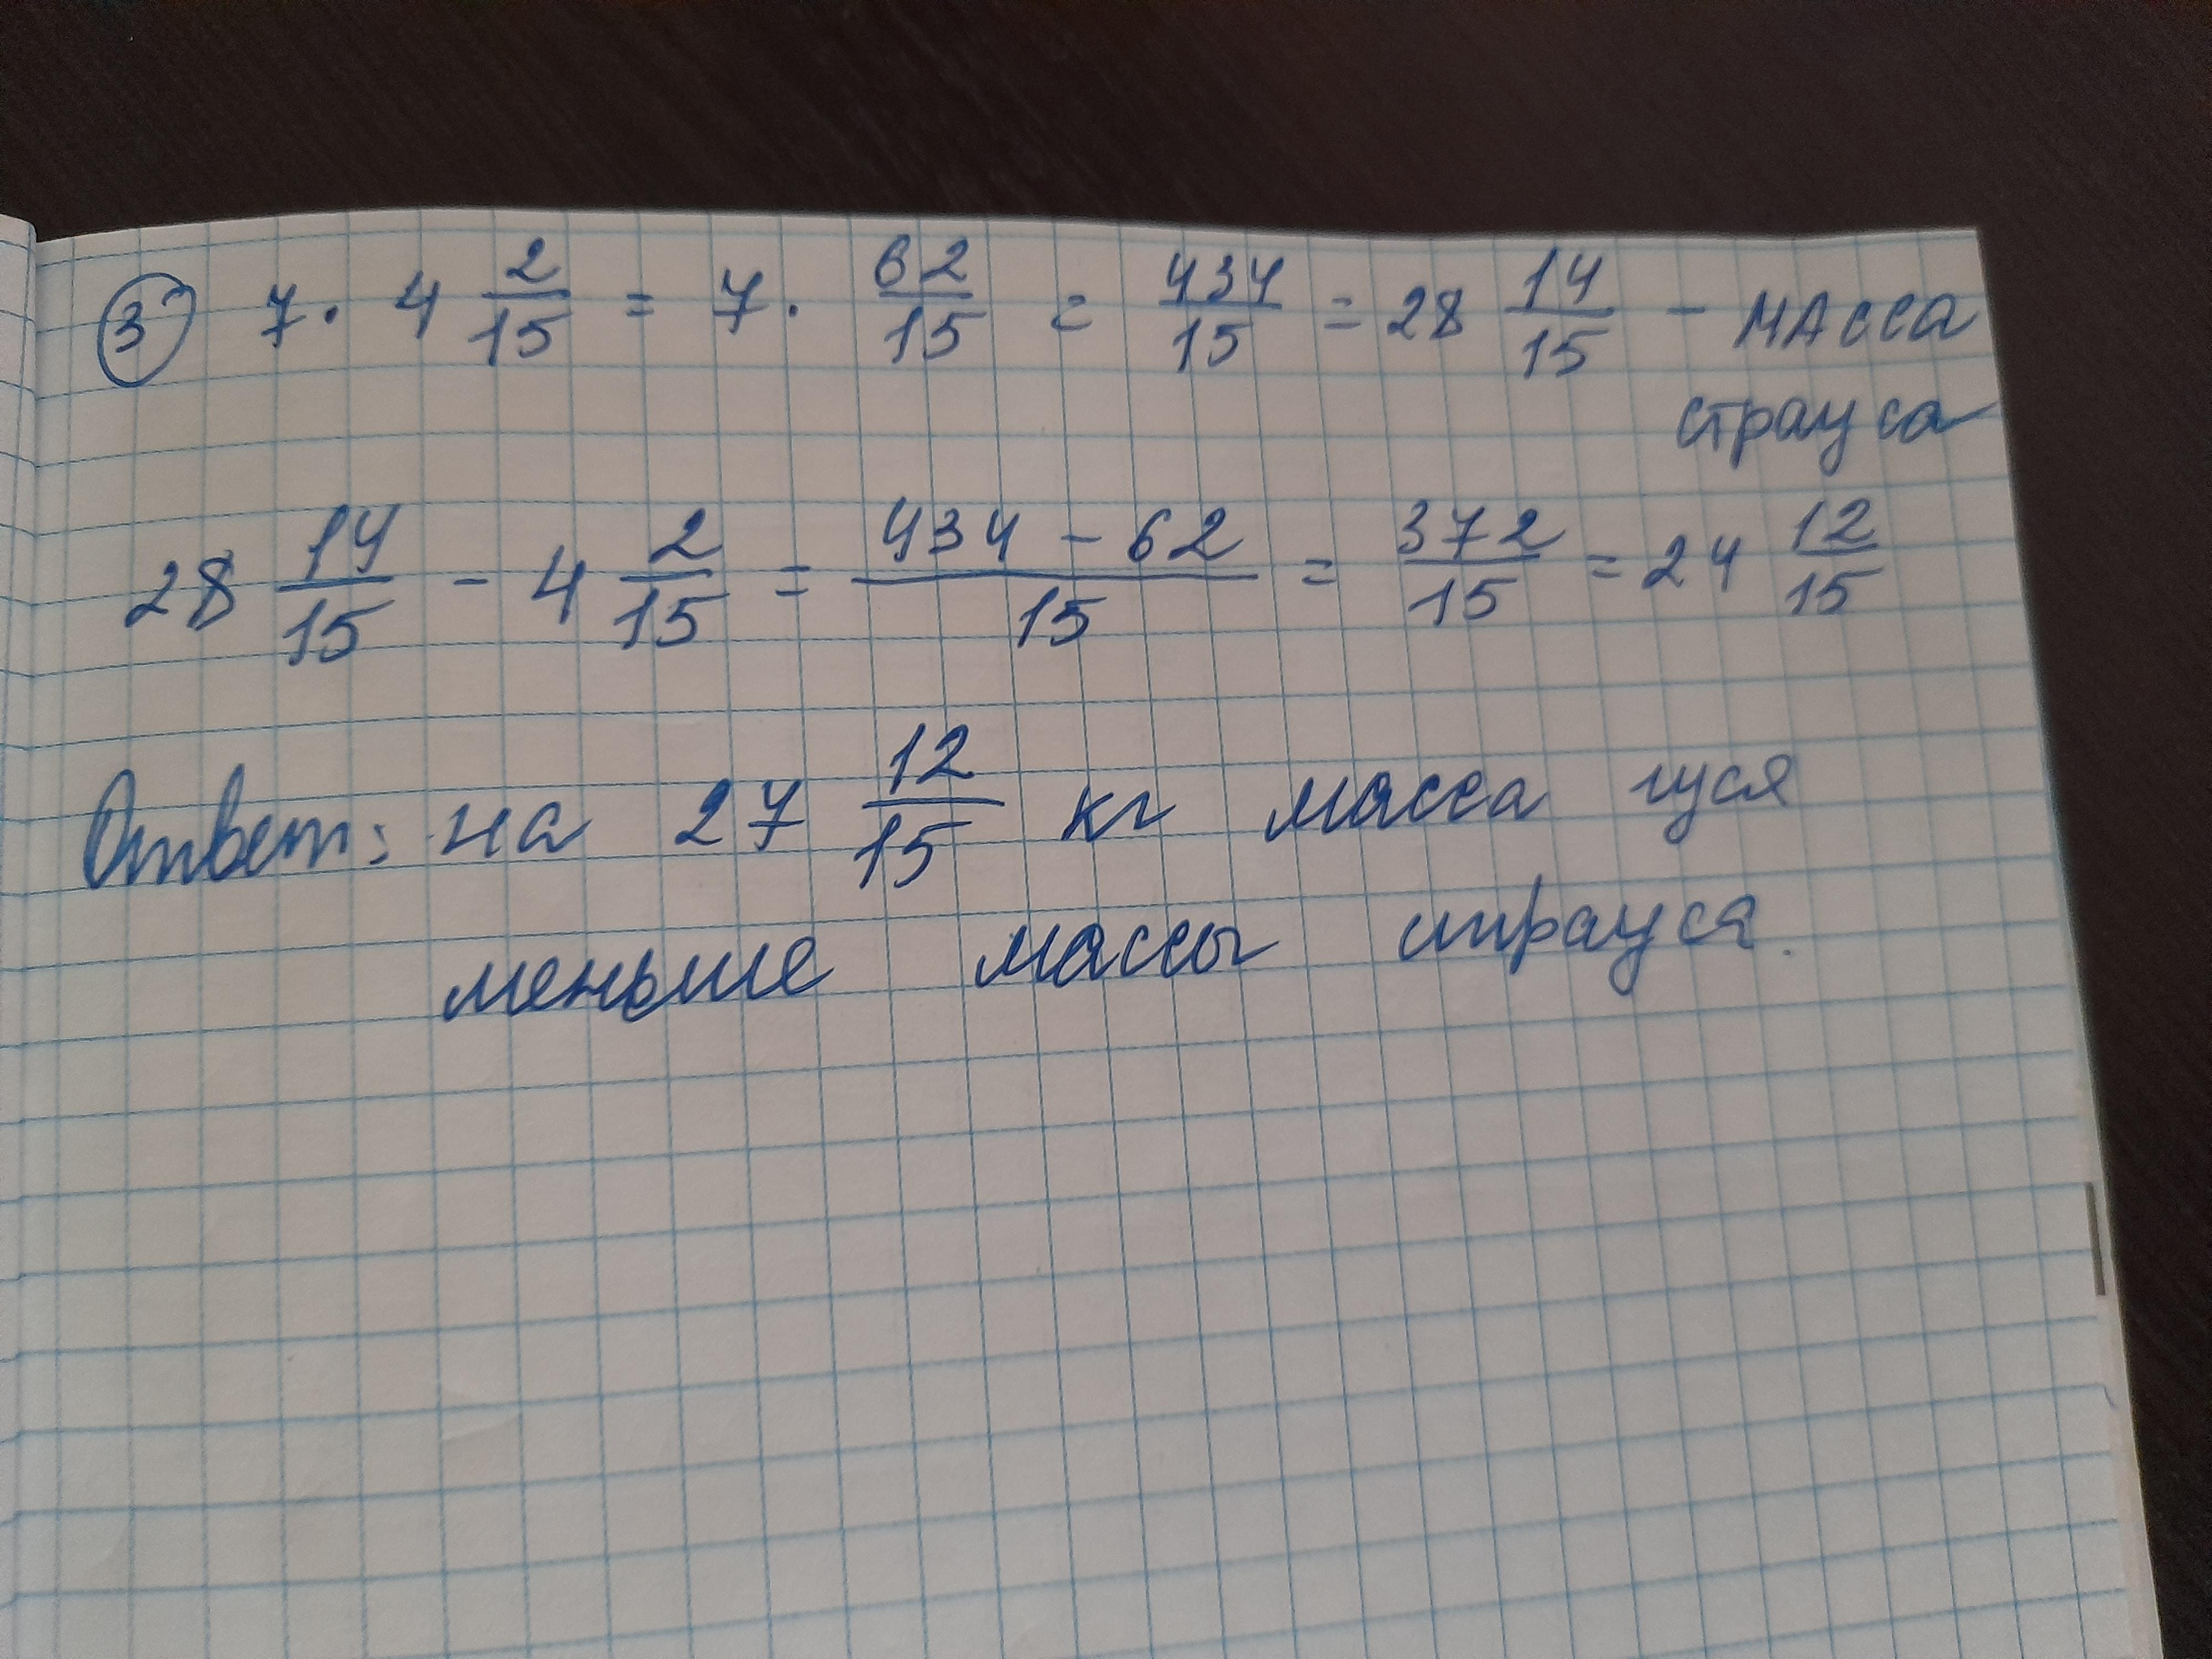 3 7 · 4 2/15 = 7 · 62/15 = 434/15 = 28 14/15 - масса
страуса
28 14/15 - 4 2/15 = 434 - 62/15 = 372/15 = 24 12/15
Ответ: на 27 12/15 кг масса гуся
меньше массы страуса.